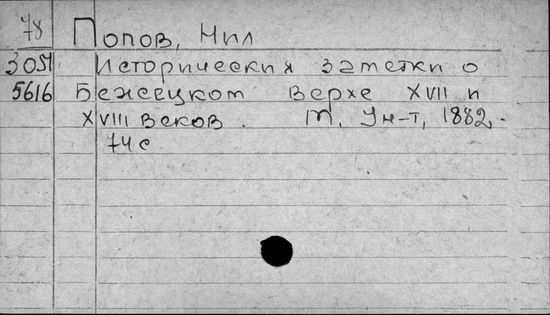 78 Попов, Нил
3051 Исторически я заметки о
5616 Бежецком Верхе XVII и
XVIII веков. М, Ун-т, 1882.
74 с